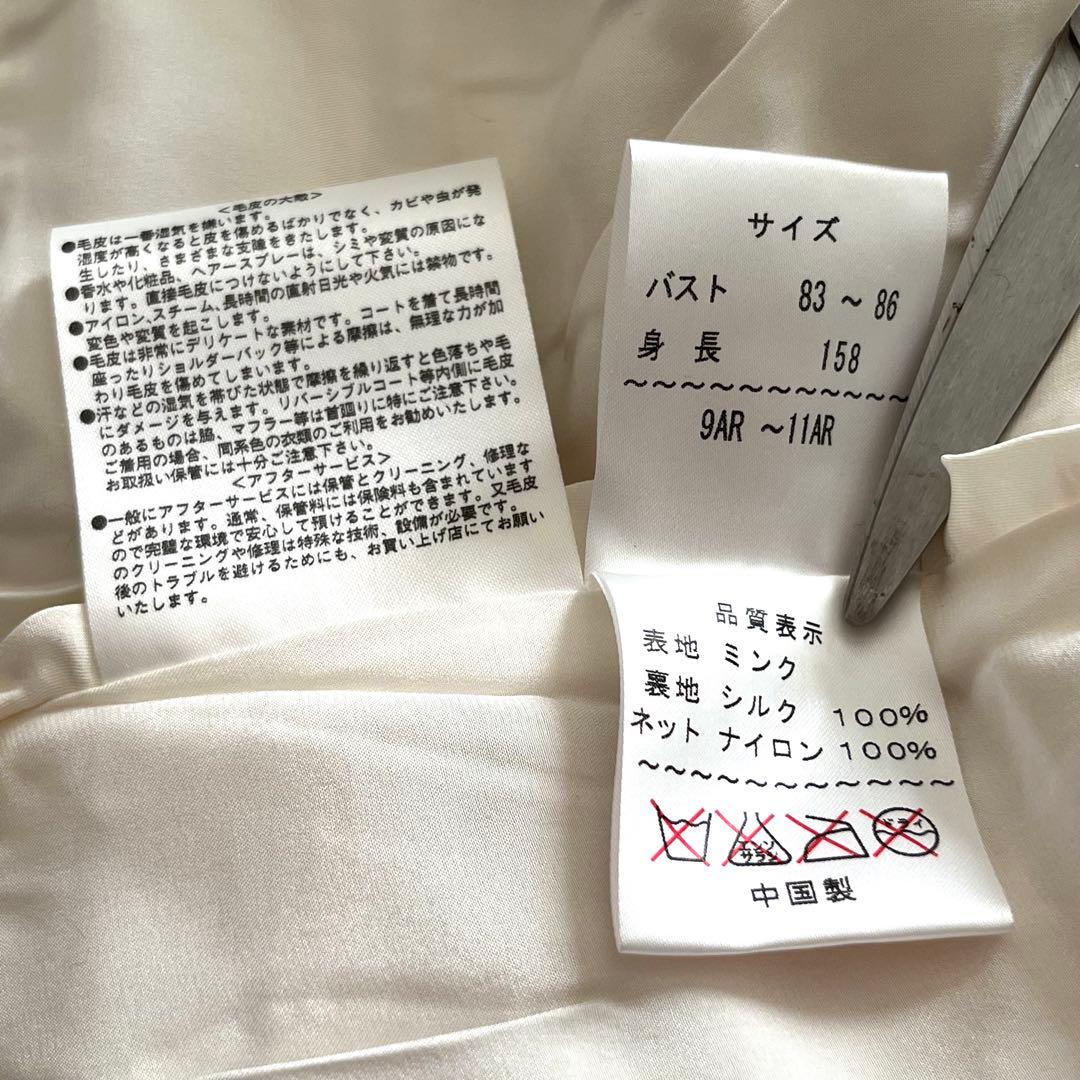 <毛皮の大敵>
●毛皮は一番湿気を嫌います。
湿度が高くなると皮を傷めるばかりでなく、カビや虫が発
生したり、さまざまな支障をきたします。
●香水や化粧品、ヘアースプレーは、シミや変質の原因にな
ります。直接毛皮につけないようにして下さい。
●アイロン、スチーム、長時間の直射日光や火気には禁物です。
変色や変質を起こします。
●毛皮は非常にデリケートな素材です。コートを着て長時間
座ったりショルダーバック等による摩擦は、無理な力が加
わり毛皮を傷めてしまいます。
●汗などの湿気を帯びた状態で摩擦を繰り返すと色落ちや毛皮
にダメージを与えます。リバーシブルコート等内側に毛皮
のあるものは脇、マフラー等は首廻りに特にご注意下さい。
ご着用の場合、同系色の衣類のご利用をお勧めいたします。
お取扱い保管には十分ご注意下さい。
<アフターサービス>
●一般にアフターサービスには保管とクリーニング、修理な
どがあります。通常、保管料には保険料も含まれています
ので完璧な環境で安心して預けることができます。又毛皮
のクリーニングや修理は特殊な技術、設備が必要です。
後のトラブルを避けるためにも、お買い上げ店にてお願い
いたします。
サイズ
バスト 83 ~ 86
身長 158
~~~~~~~~~~~
9AR ~11AR
品質表示
表地 ミンク
裏地 シルク 100%
ネット ナイロン 100%
~~~~~~~~~~~~
エンソ
サラシ
ドライ
中国製